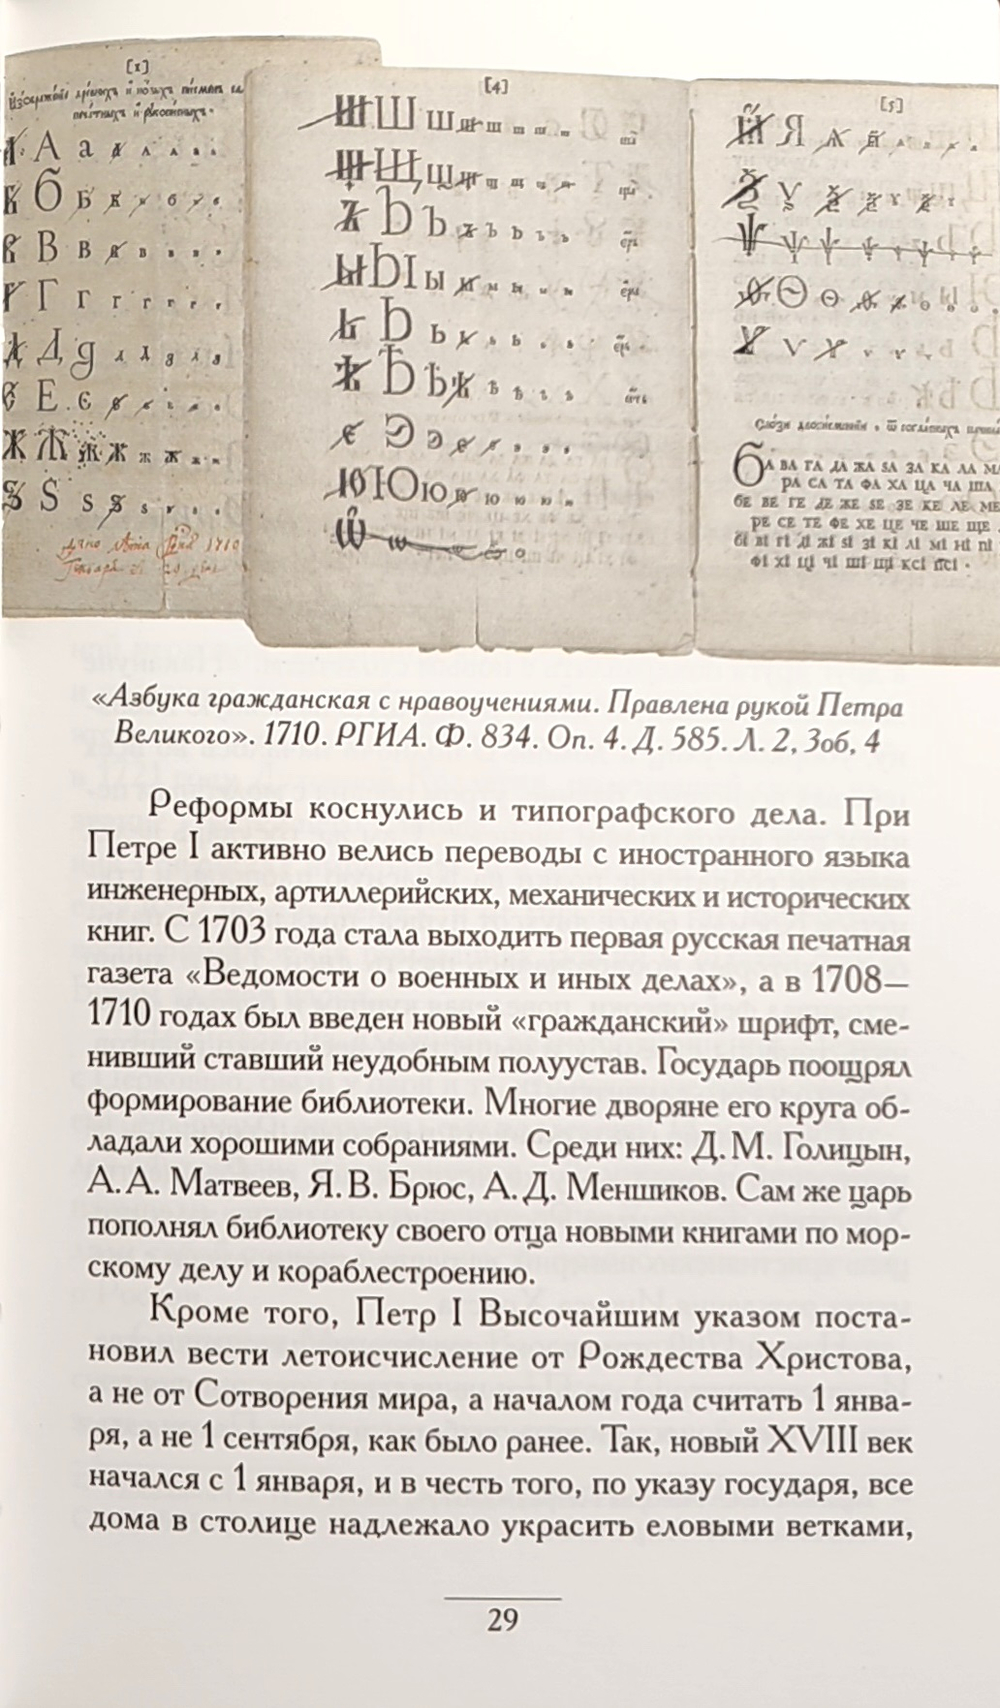 [1]
[4]
[5]
А а
Б
В в
Г г
Д
Е
Ш ш
Щ щ
Ъ ъ
Ы ы
Ь ь
Ѣ ѣ
Э э
Ю ю
Я
Ѳ ѳ
ба ва га да жа ѕа за ка ла ма
ра са та фа ха ца ча ша
бе ве ге де же ѕе зе ке ле ме
ре се те фе хе це че ше ще
бі ві гі ді жі ѕі зі кі лі мі ні пі
фі хі ці чі ші щі ксі псі .
«Азбука гражданская с нравоучениями. Правлена рукой Петра
Великого». 1710. РГИА. Ф. 834. Оп. 4. Д. 585. Л. 2, 3об, 4
Реформы коснулись и типографского дела. При
Петре I активно велись переводы с иностранного языка
инженерных, артиллерийских, механических и исторических
книг. С 1703 года стала выходить первая русская печатная
газета «Ведомости о военных и иных делах», а в 1708—
1710 годах был введен новый «гражданский» шрифт, сме-
нивший ставший неудобным полуустав. Государь поощрял
формирование библиотеки. Многие дворяне его круга об-
ладали хорошими собраниями. Среди них: Д. М. Голицын,
А. А. Матвеев, Я. В. Брюс, А. Д. Меншиков. Сам же царь
пополнял библиотеку своего отца новыми книгами по мор-
скому делу и кораблестроению.
Кроме того, Петр I Высочайшим указом поста-
новил вести летоисчисление от Рождества Христова,
а не от Сотворения мира, а началом года считать 1 янва-
ря, а не 1 сентября, как было ранее. Так, новый XVIII век
начался с 1 января, и в честь того, по указу государя, все
дома в столице надлежало украсить еловыми ветками,
29